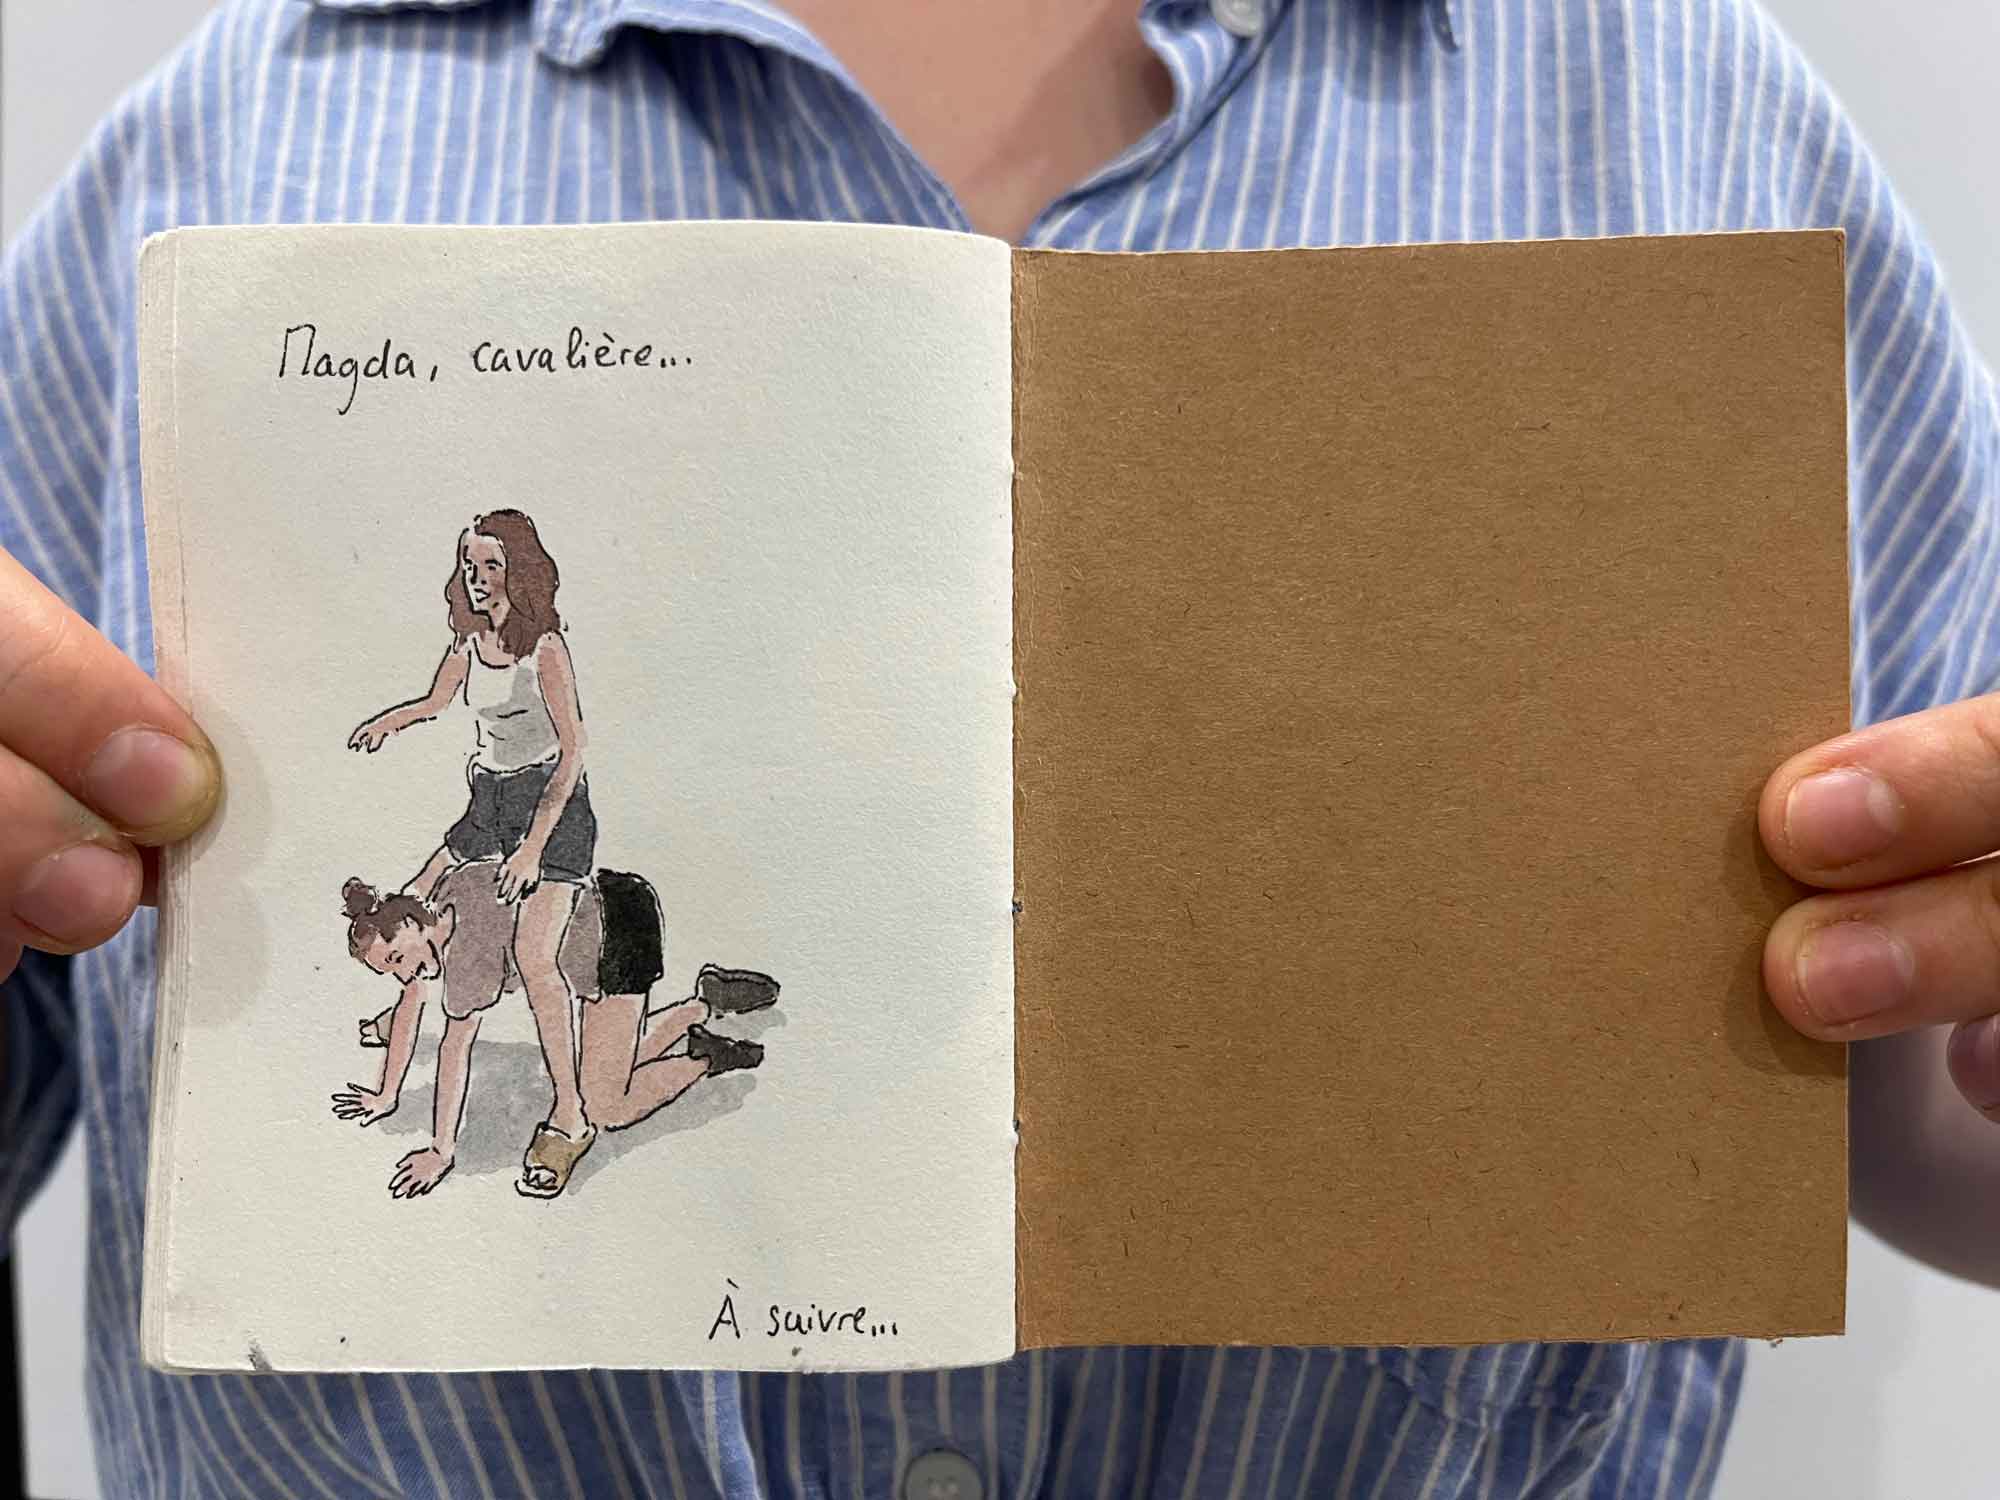 Magda, cavalière...
À suivre...